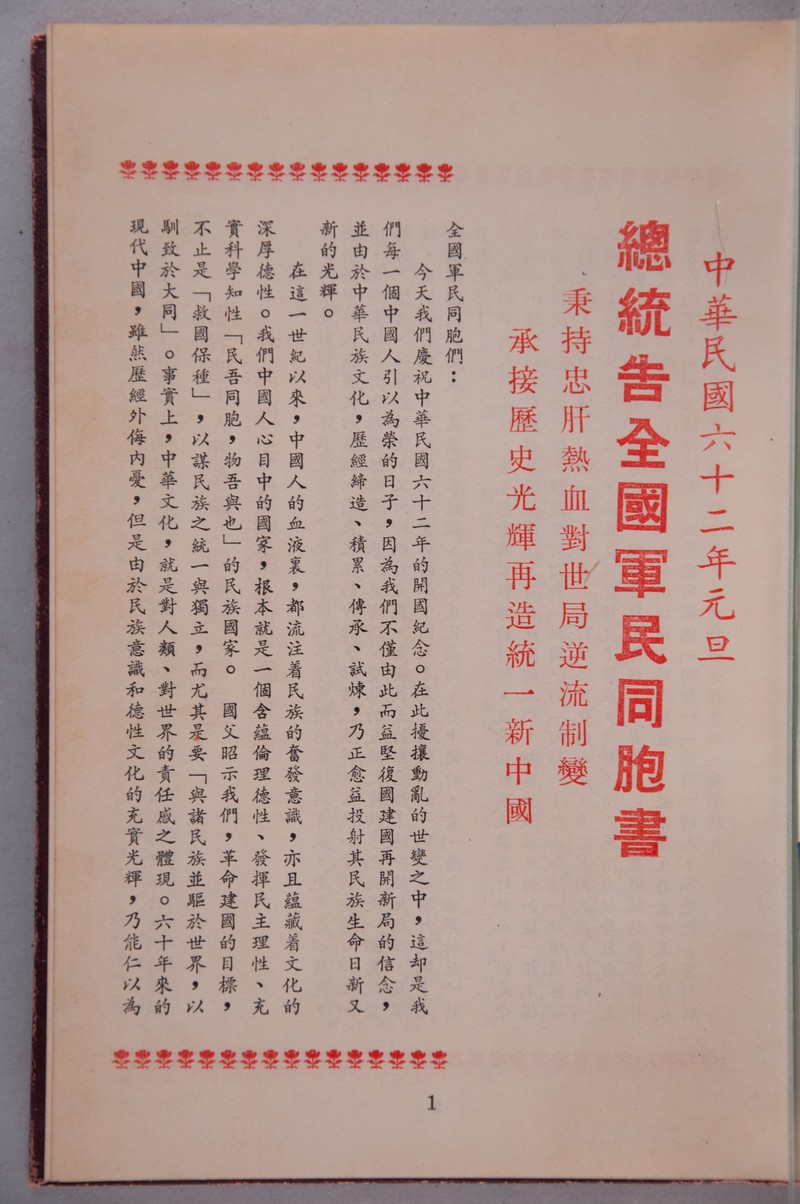 中華民國六十二年元旦
總統告全國軍民同胞書
秉持忠肝熱血對世局逆流制變
承接歷史光輝再造統一新中國
全國軍民同胞們：
今天我們慶祝中華民國六十二年的開國紀念。在此擾攘動亂的世變之中，這却是我
們每一個中國人引以為榮的日子，因為我們不僅由此而益堅復國建國再開新局的信念，
並由於中華民族文化，歷經締造、積累、傳承、試煉，乃正愈益投射其民族生命日新又
新的光輝。
在這一世紀以來，中國人的血液裏，都流注着民族的奮發意識，亦且蘊藏着文化的
深厚德性。我們中國人心目中的國家，根本就是一個含蘊倫理德性、發揮民主理性、充
實科學知性「民吾同胞，物吾與也」的民族國家。國父昭示我們，革命建國的目標，
不止是「救國保種」，以謀民族之統一與獨立，而尤其是要「與諸民族並驅於世界，以
馴致於大同」。事實上，中華文化，就是對人類、對世界的責任感之體現。六十年來的
現代中國，雖然歷經外侮內憂，但是由於民族意識和德性文化的充實光輝，乃能仁以為
1